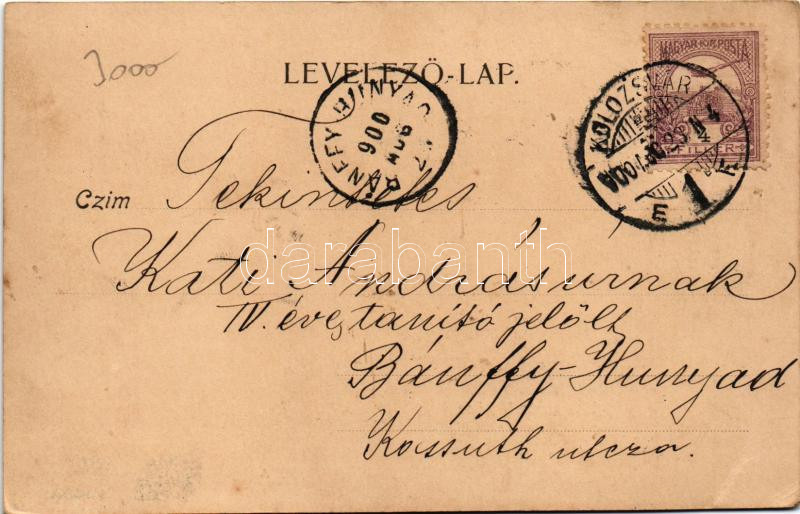 3000
LEVELEZŐ-LAP.
MAGYAR KIR. POSTA
BÁNFFY HUNYAD
900
AUG
KOLOZSVÁR
E 1 E
Czim Tekintetes
Kati András urnak
IV. éves tanító jelölt
Bánffy-Hunyad
Kossuth utcza.
darabanth